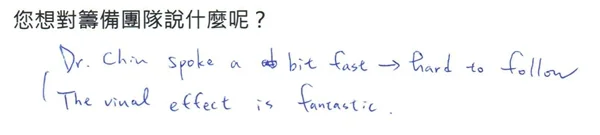 您想對籌備團隊說什麼呢？
Dr. Chin spoke a bit fast → hard to follow
The visual effect is fantastic.